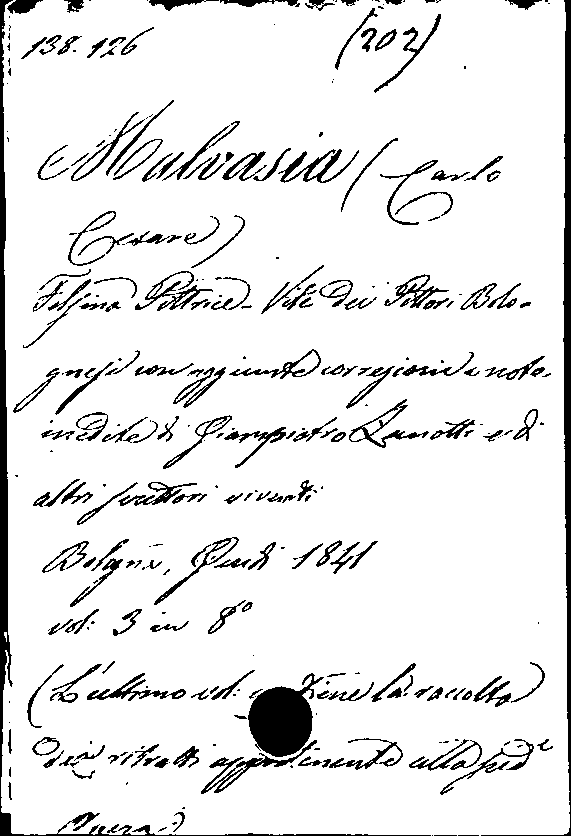 138. 126 (202)
Malvasia (Carlo
Cesare)
Felsina Pittrice - Vite dei Pittori Bolo-
gnesi con aggiunte correzioni e note
inedite di Giampietro Zanotti e di
altri scrittori viventi
Bologna, Guidi 1841
vol: 3 in 8º
(L'ultimo vol: tiene la raccolta
dei ritratti appartenente alla sudª
opera)